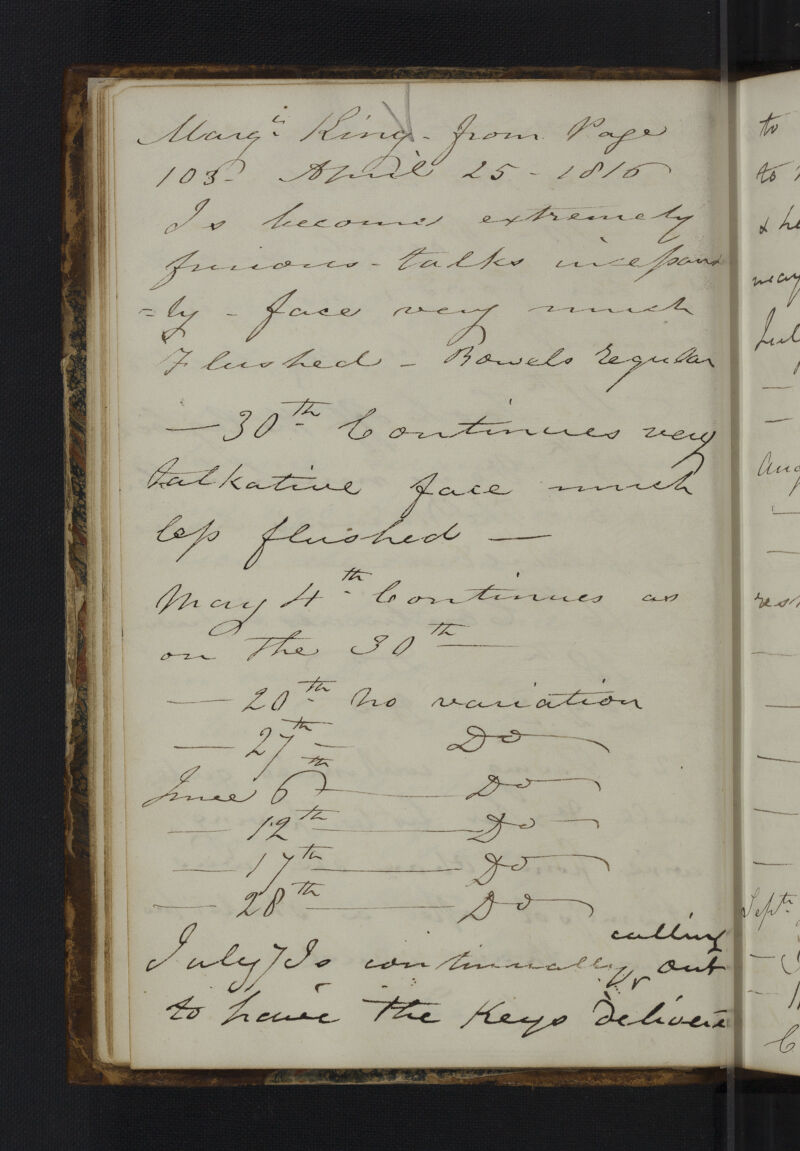 Margt. King - from Page
103 - April 25 - 1816
Is become extremely
furious - talks incessant
=ly - face very much
Flushed - Bowels regular
— 30th Continues very
talkative face much
less flushed —
May 4th Continues as
on the 30th —
— 20th no variation
— 27th — Do —
June 6th — Do —
— 12th — Do —
— 17th — Do —
— 28th — Do —
calling
July 7 Is continually out
to have the Keys deliver
to
to
& he
may
Jul
Aug
rest
Septr